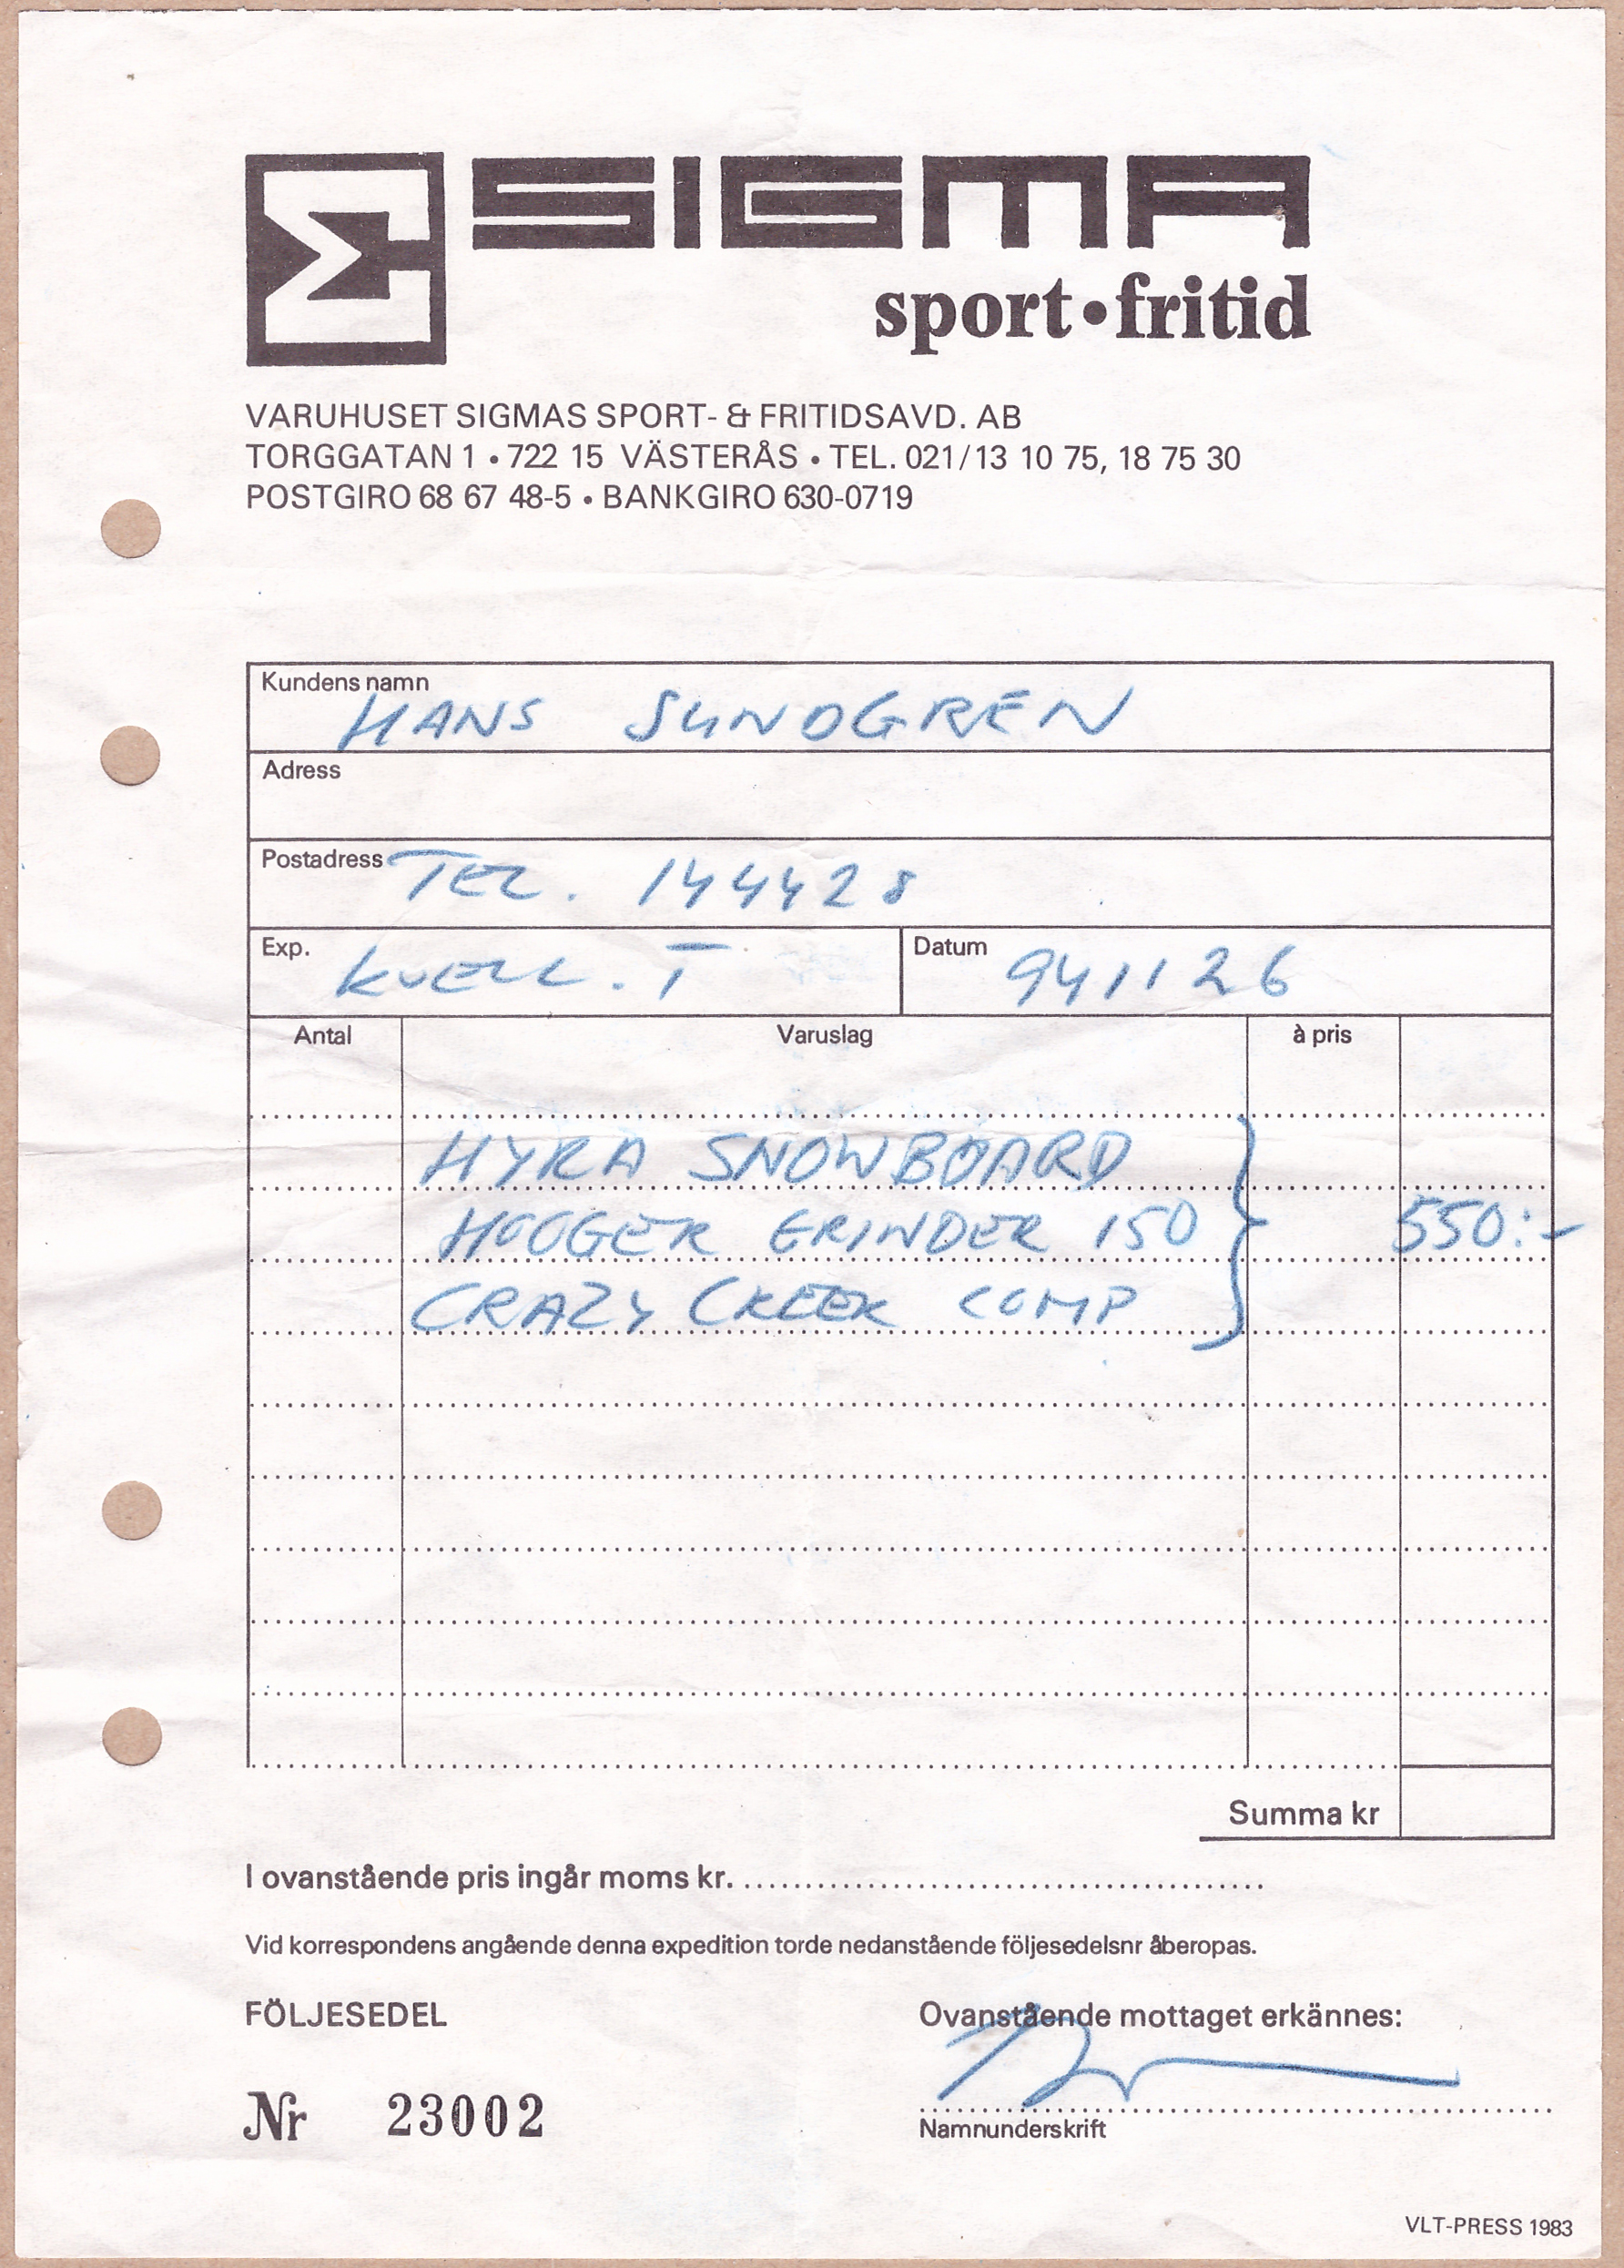 Σ SIGMA
sport•fritid
VARUHUSET SIGMAS SPORT- & FRITIDSAVD. AB
TORGGATAN 1 • 722 15 VÄSTERÅS • TEL. 021/13 10 75, 18 75 30
POSTGIRO 68 67 48-5 • BANKGIRO 630-0719
Kundens namn
HANS SUNDGREN
Adress
Postadress TEL. 144428
Exp. KVELL. T Datum 941126
Antal Varuslag à pris
HYRA SNOWBOARD
HOOGER GRINDER 150 550:-
CRAZY CREEK COMP
Summa kr
I ovanstående pris ingår moms kr.
Vid korrespondens angående denna expedition torde nedanstående följesedelsnr åberopas.
FÖLJESEDEL Ovanstående mottaget erkännes:
Nr 23002
Namnunderskrift
VLT-PRESS 1983